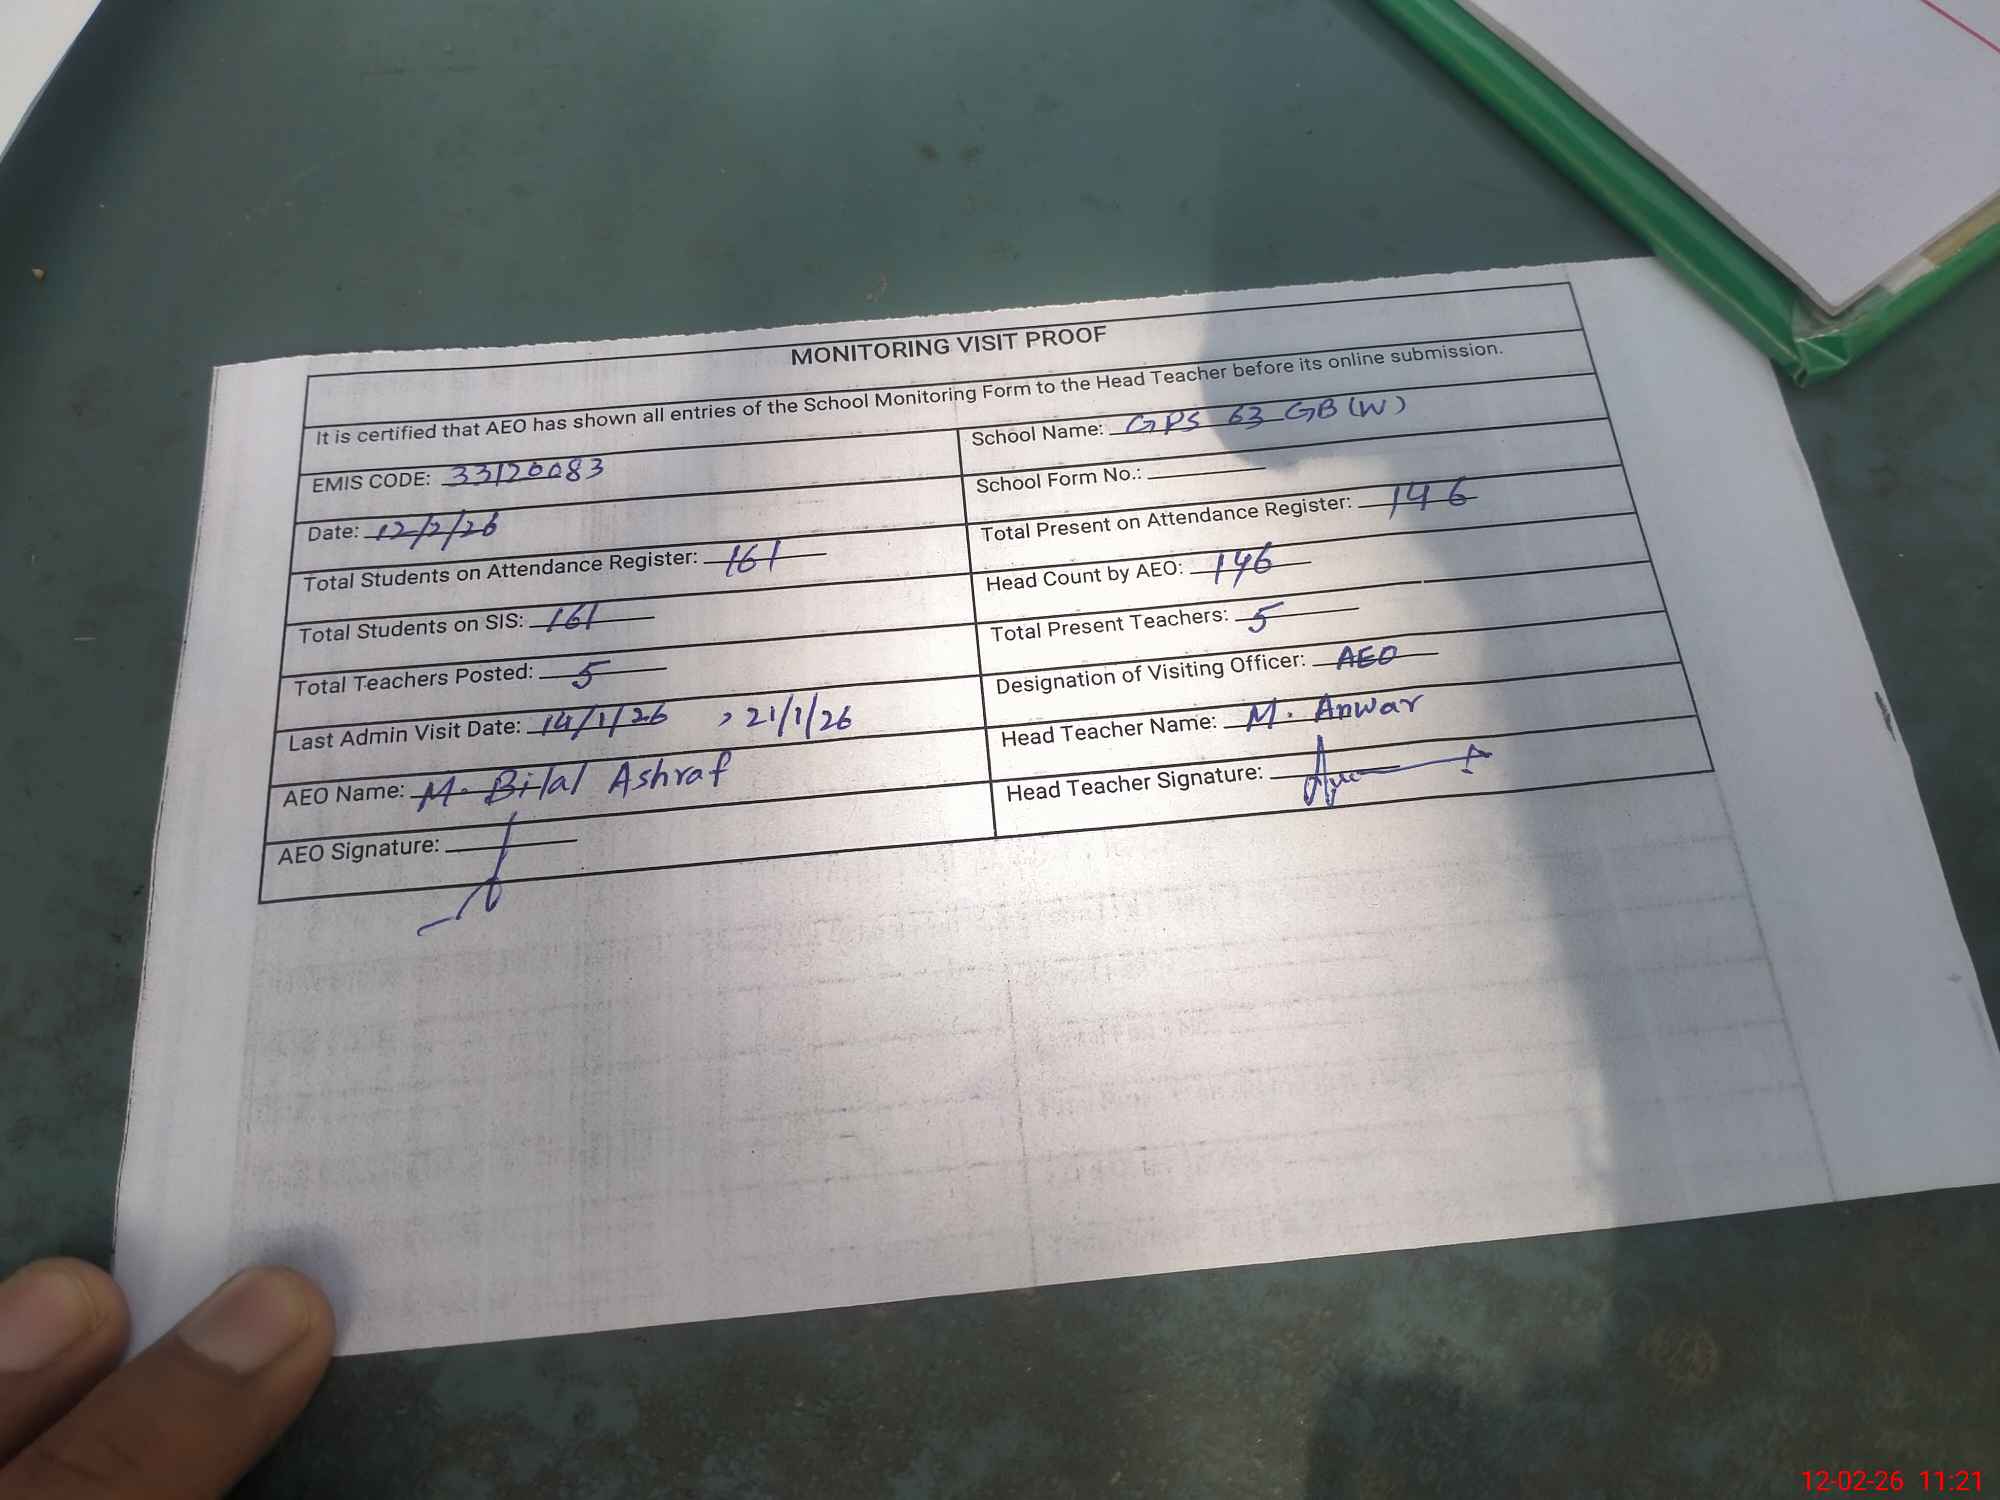 MONITORING VISIT PROOF
It is certified that AEO has shown all entries of the School Monitoring Form to the Head Teacher before its online submission.
EMIS CODE: 33120083
School Name: GPS 63 GB (W)
Date: 12/2/26
School Form No.:
Total Students on Attendance Register: 161
Total Present on Attendance Register: 146
Total Students on SIS: 161
Head Count by AEO: 146
Total Teachers Posted: 5
Total Present Teachers: 5
Last Admin Visit Date: 14/1/26 , 21/1/26
Designation of Visiting Officer: AEO
AEO Name: M. Bilal Ashraf
Head Teacher Name: M. Anwar
AEO Signature:
Head Teacher Signature:
12-02-26 11:21